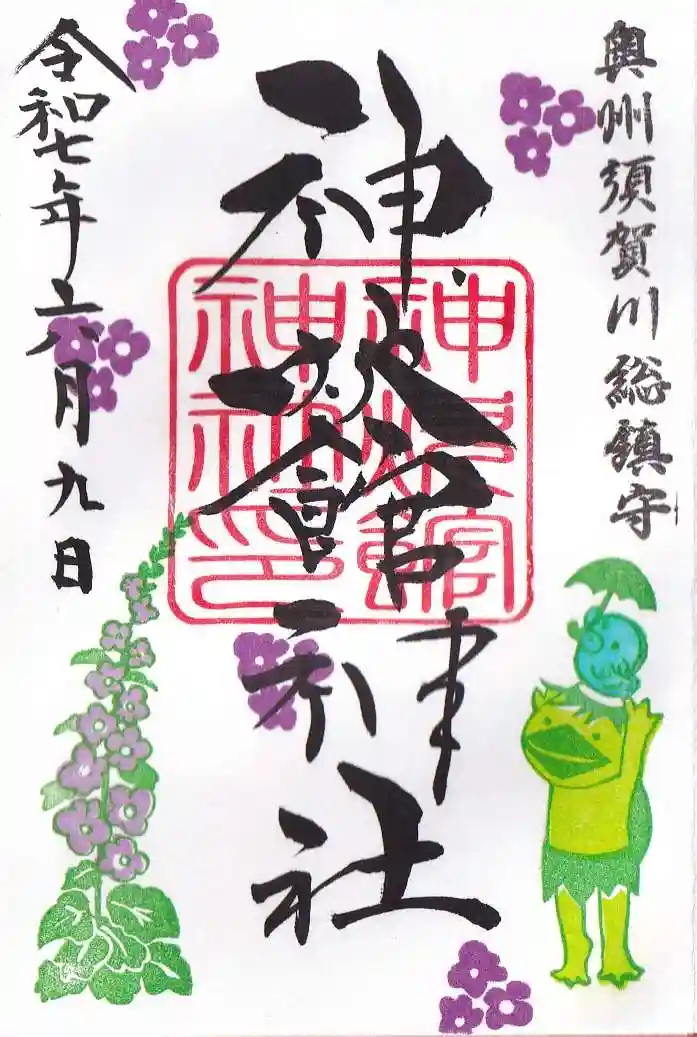 奥州須賀川総鎮守
神炊館神社
神炊館
神社印
令和七年六月九日